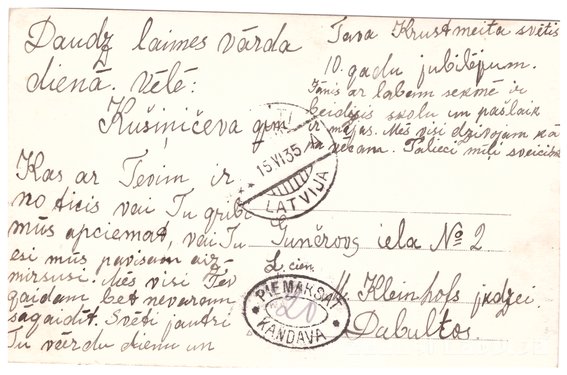 Daudz laimes vārda
dienā. vēlē:
Kušiņičeva ģim.
Kas ar Tevim ir
noticis vai Tu gribi
mūs apciemat, vai Tu
esi mūs pavisam aiz
mirsusi. Mēs visi Tēv
gaidam bet nevaram
sagaidīt. Svēti jautri
Tu vārdu dienu un
Tava Krustmeita svētīs
10. gadu jubilējum.
Janis ar labem sekmē ir
beidzis skolu un pašlaik
ir mājas. Mēs visi dzīvojam kā
pa vēcam. Paliec mīļi sveicin
15 VI 35
LATVIJA
L. cien.
Kleinhofs jkdzei.
Gunčrovs iela № 2
Dubultos.
PIEMAKSĀT
20
KANDAVA